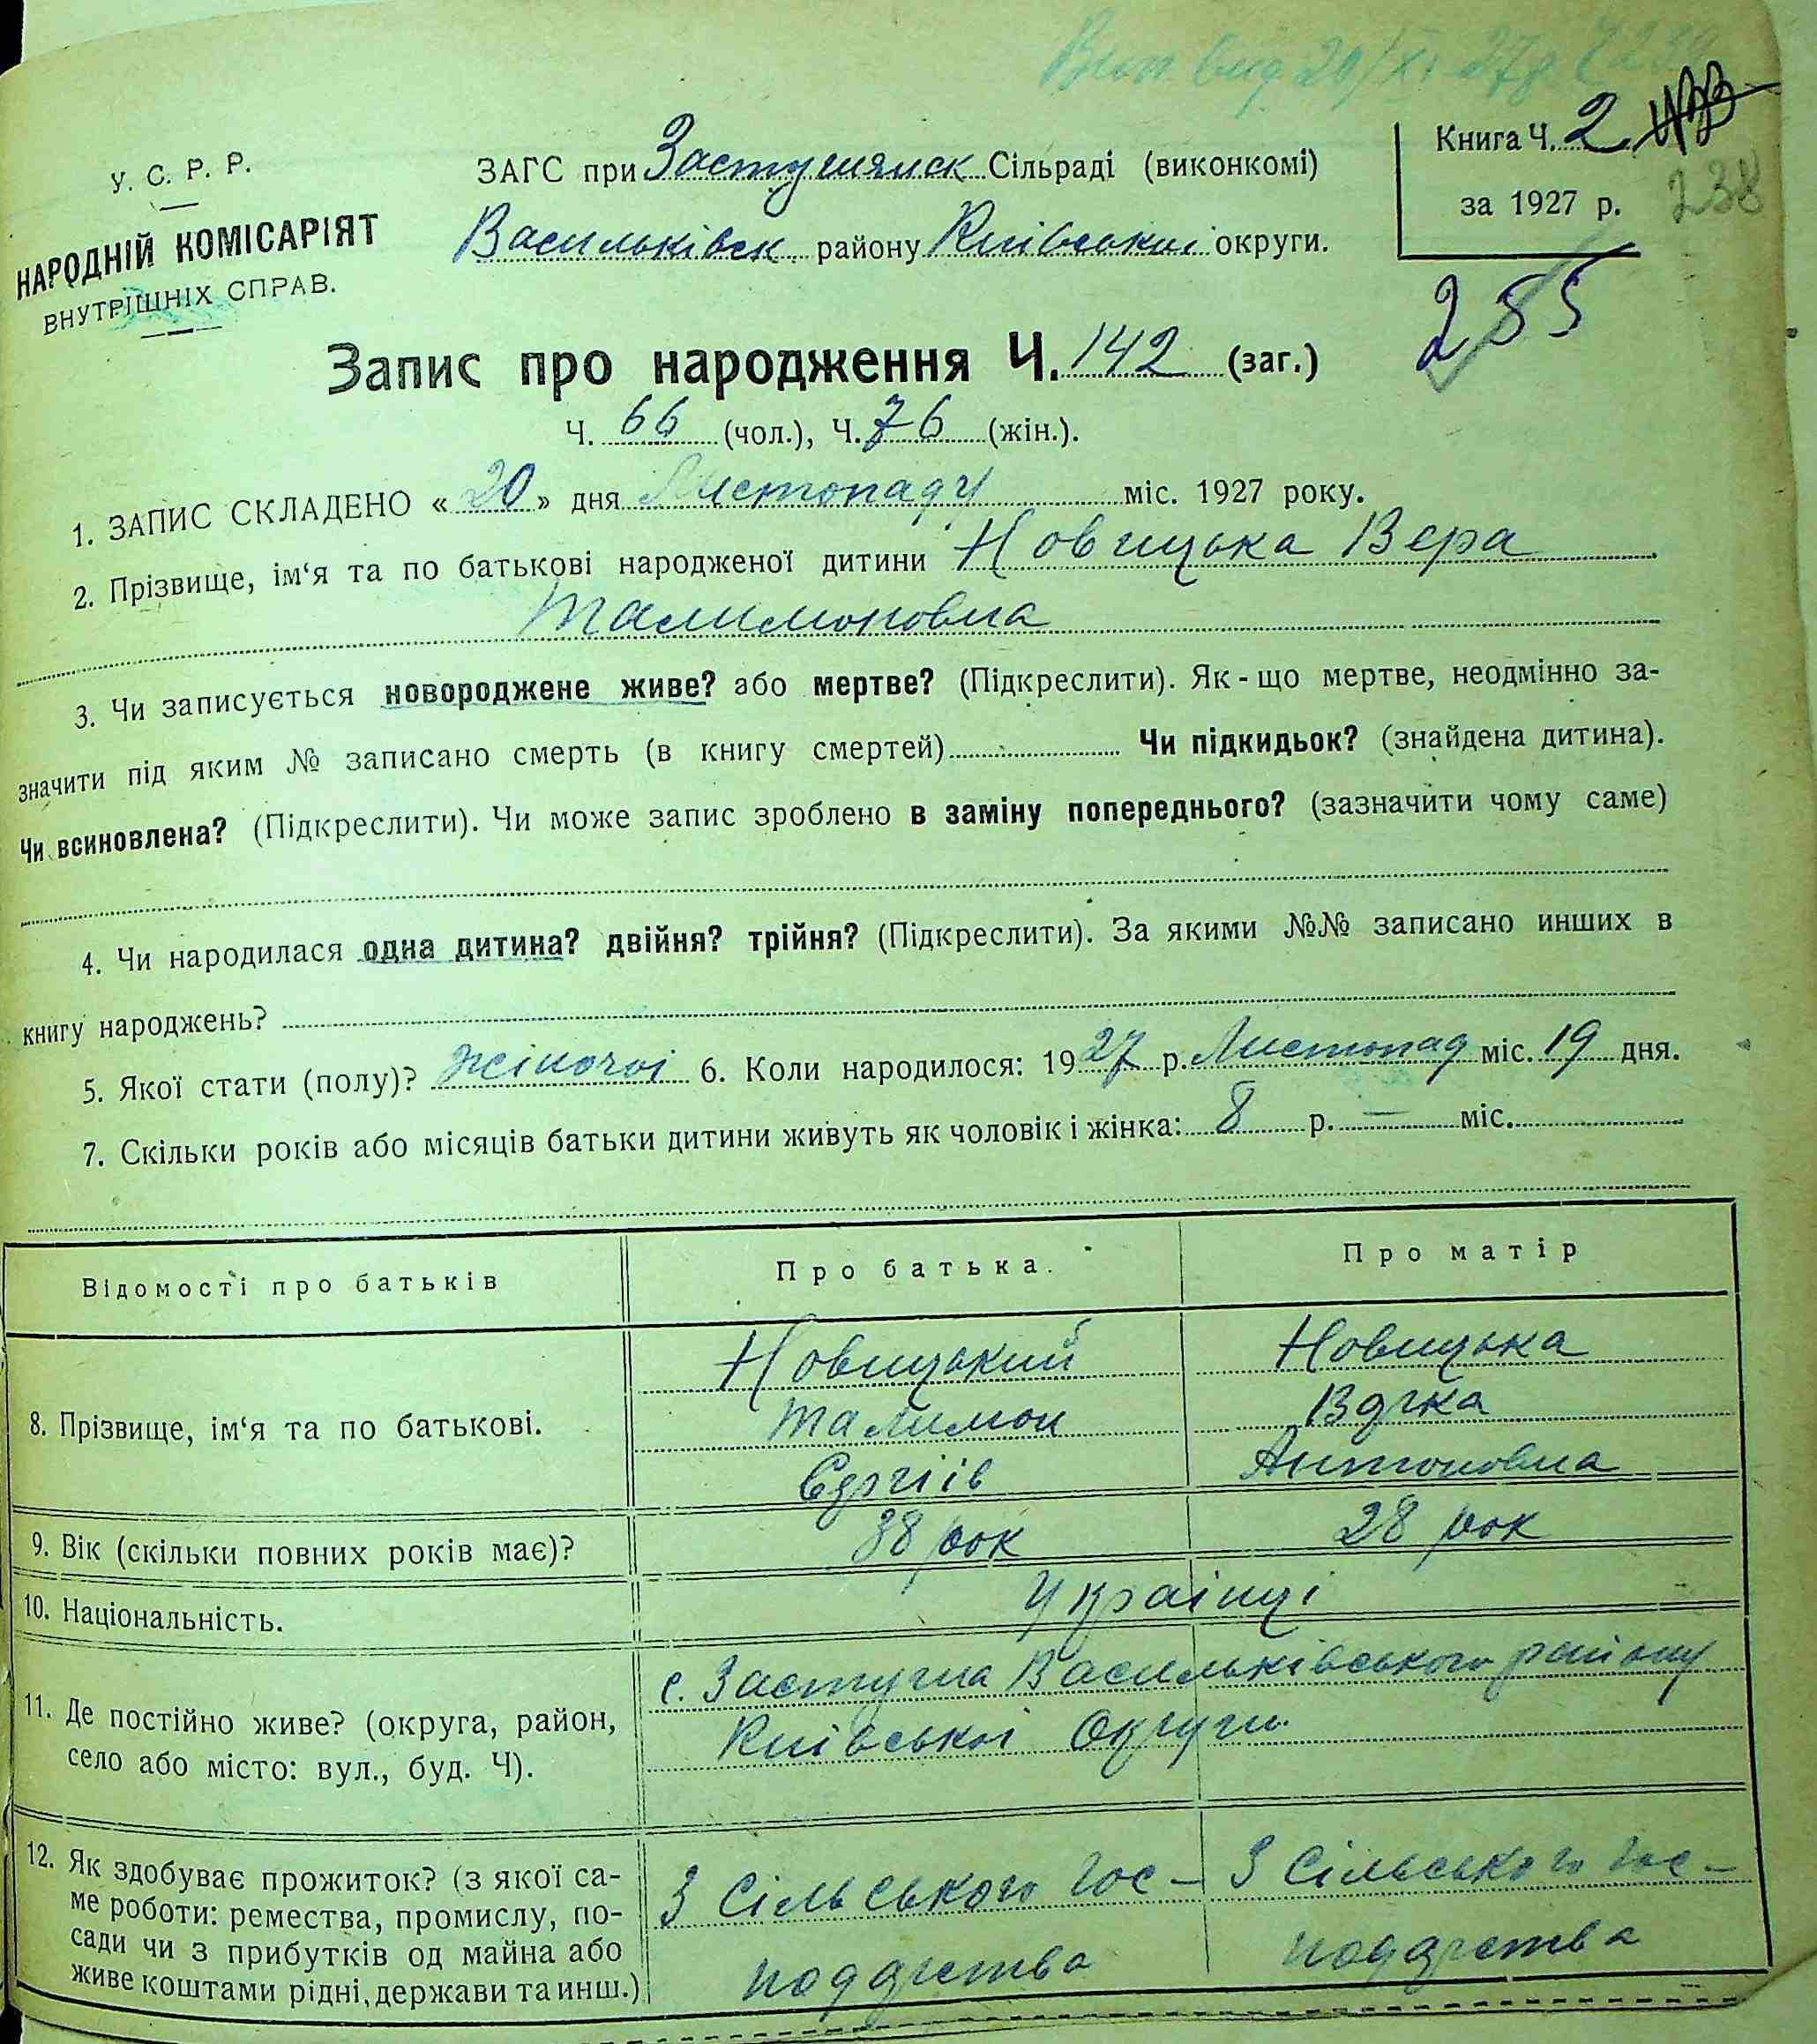 Вип. вид. 20/XI 27р.
У. С. Р. Р.
НАРОДНІЙ КОМІСАРІЯТ
ВНУТРІШНІХ СПРАВ.
ЗАГС при Застугнянск Сільраді (виконкомі)
Васильківск району Київської округи.
Книга Ч. 2
за 1927 р.
238
255
Запис про народження Ч. 142 (заг.)
Ч. 66 (чол.), Ч. 76 (жін.).
1. ЗАПИС СКЛАДЕНО « 20 » дня Листопаду міс. 1927 року.
2. Прізвище, ім‘я та по батькові народженої дитини Новицька Вера
Талимоновна
3. Чи записується новороджене живе? або мертве? (Підкреслити). Як-що мертве, неодмінно за-
значити під яким № записано смерть (в книгу смертей) Чи підкидьок? (знайдена дитина).
Чи всиновлена? (Підкреслити). Чи може запис зроблено в заміну попереднього? (зазначити чому саме)
4. Чи народилася одна дитина? двійня? трійня? (Підкреслити). За якими №№ записано инших в
книгу народжень?
5. Якої стати (полу)? жіночої 6. Коли народилося: 1927 р. Листопад міс. 19 дня.
7. Скільки років або місяців батьки дитини живуть як чоловік і жінка: 8 р. — міс.
Відомості про батьків Про батька. Про матір
8. Прізвище, ім‘я та по батькові.
Новицький Новицька
Талимон
Сергіїв Антоновна
9. Вік (скільки повних років має)? 38 рок 28 рок
10. Національність. Українці
11. Де постійно живе? (округа, район,
село або місто: вул., буд. Ч).
с. Застугна Васильківського району
Київської Округи
12. Як здобуває прожиток? (з якої са-
ме роботи: ремества, промислу, по-
сади чи з прибутків од майна або
живе коштами рідні, держави та инш.)
З Сільського гос- З Сільського гос-
подарства подарства